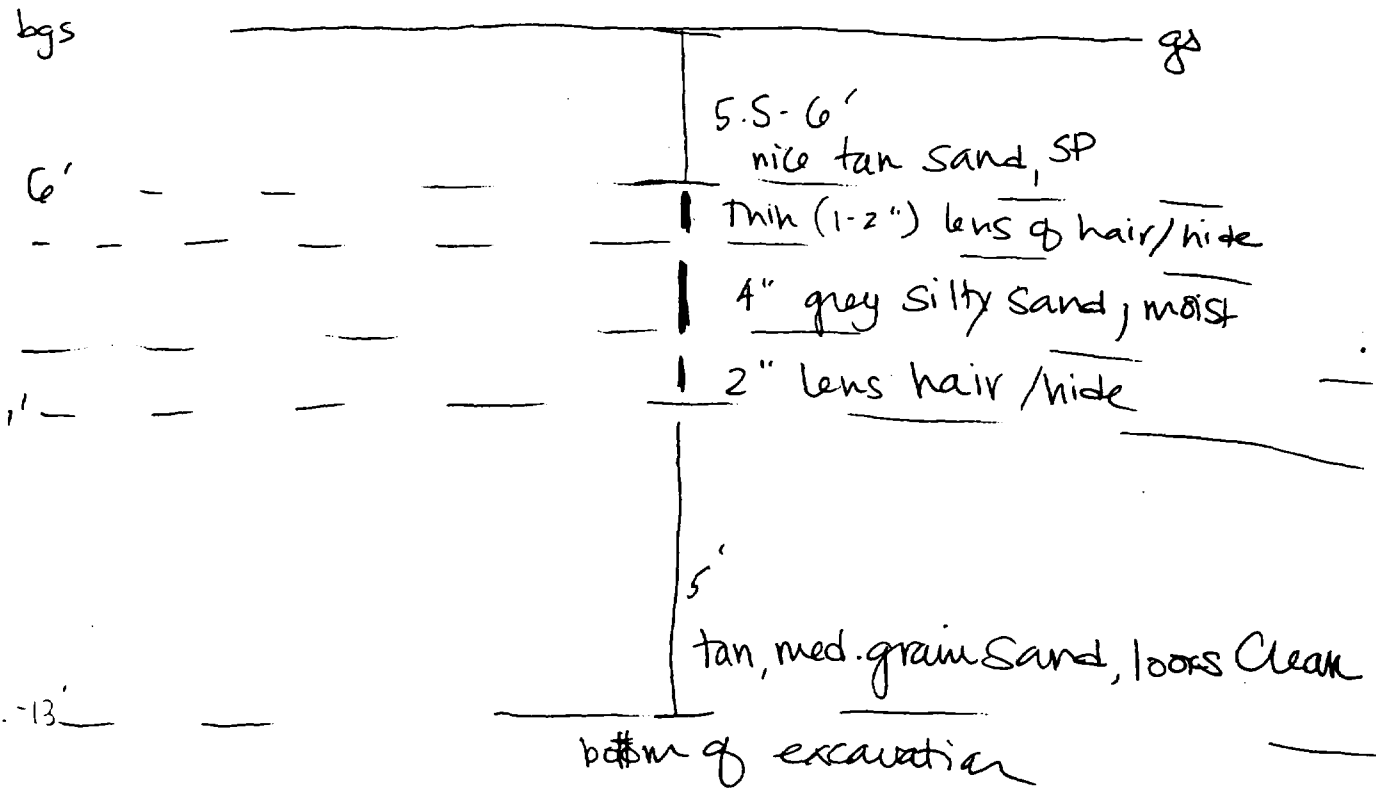 bgs
gs
5.5-6'
nice tan sand, SP
6'
Thin (1-2") lens of hair/hide
4" grey silty sand, moist
2" lens hair/hide
5'
tan, med. grain sand, looks clean
-13'
bottom of excavation